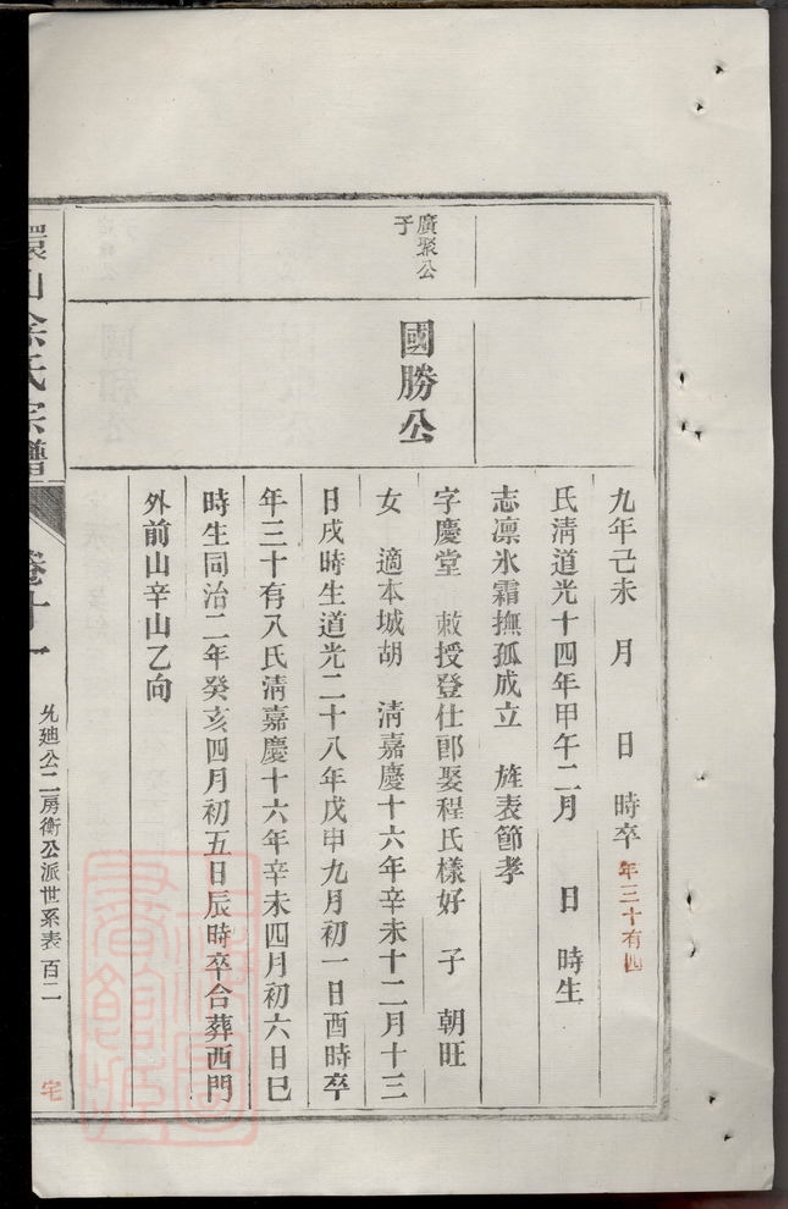 九年己未　月　　日　時卒年三十有四
氏淸道光十四年甲午二月　　日　時生
志凛氷霜撫孤成立　旌表節孝
廣聚公
子
國勝公
字慶堂　敕授登仕郎娶程氏樣好　子　朝旺
女　適本城胡　淸嘉慶十六年辛未十二月十三
日戌時生道光二十八年戊申九月初一日酉時卒
年三十有八氏淸嘉慶十六年辛未四月初六日巳
時生同治二年癸亥四月初五日辰時卒合葬西門
外前山辛山乙向
環山余氏宗譜
卷十一
允迪公二房衛公派世系表　百二
宅